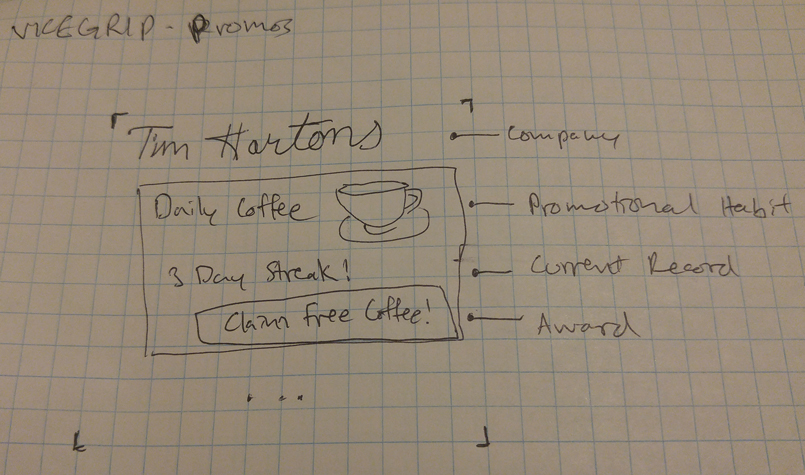 VICEGRIP - Promos
Tim Hortons
Company
Daily Coffee
Promotional Habit
3 Day Streak!
Current Record
Claim Free Coffee!
Award
...